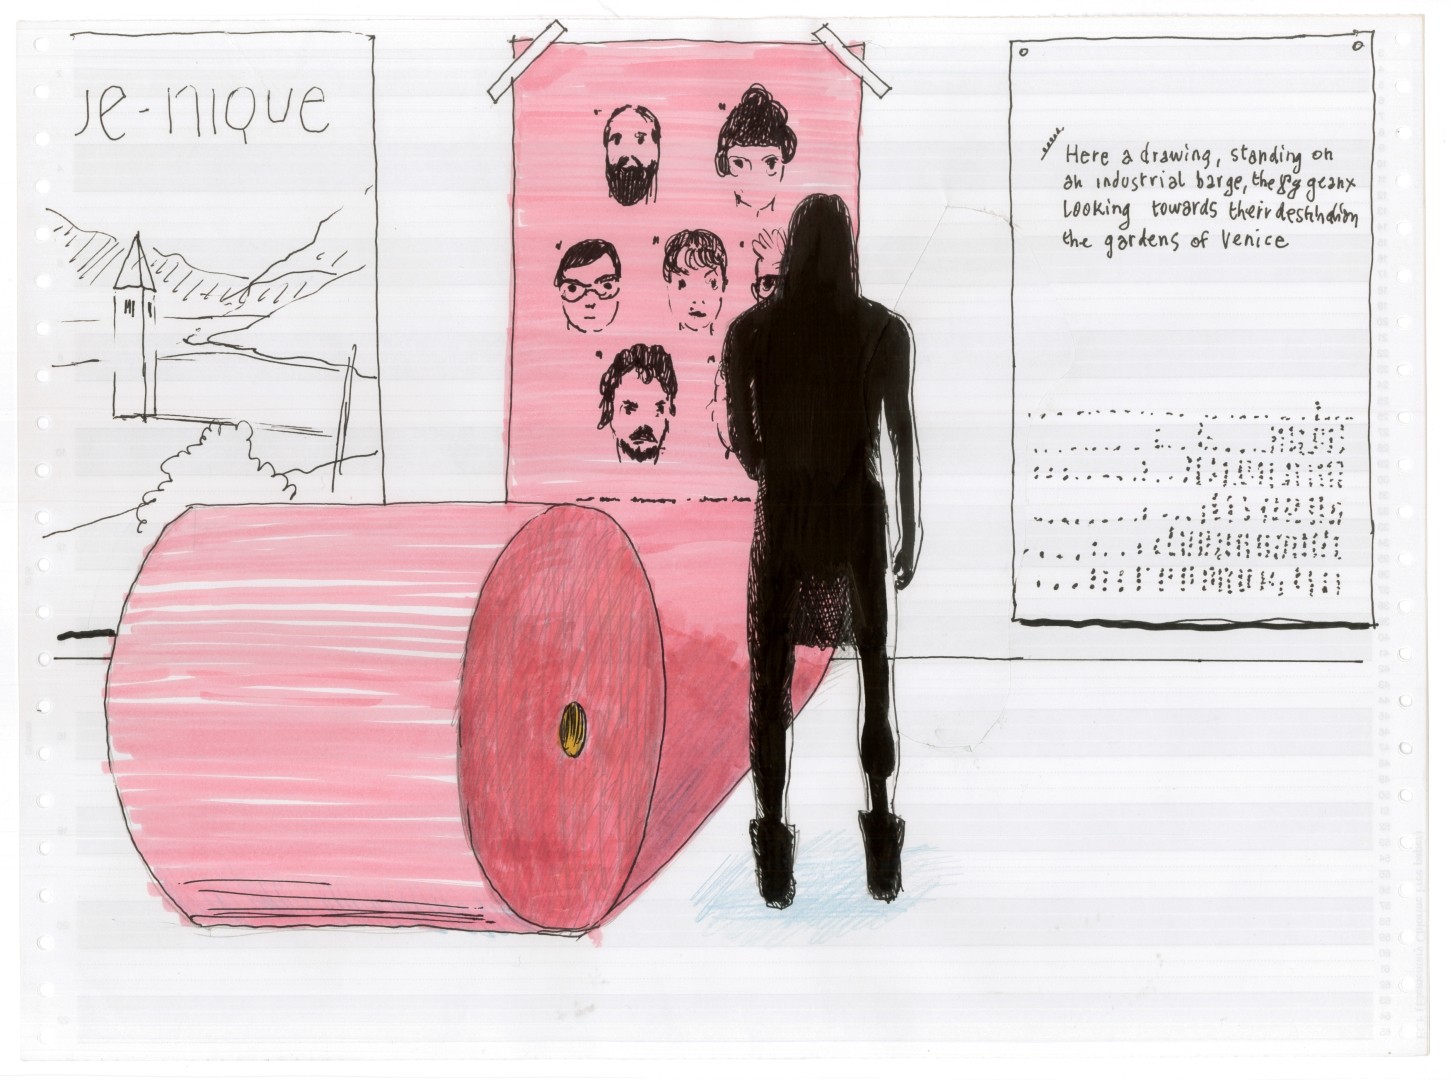 Je-nique
Here a drawing, standing on
an industrial barge, the geanx
looking towards their destination
the gardens of Venice